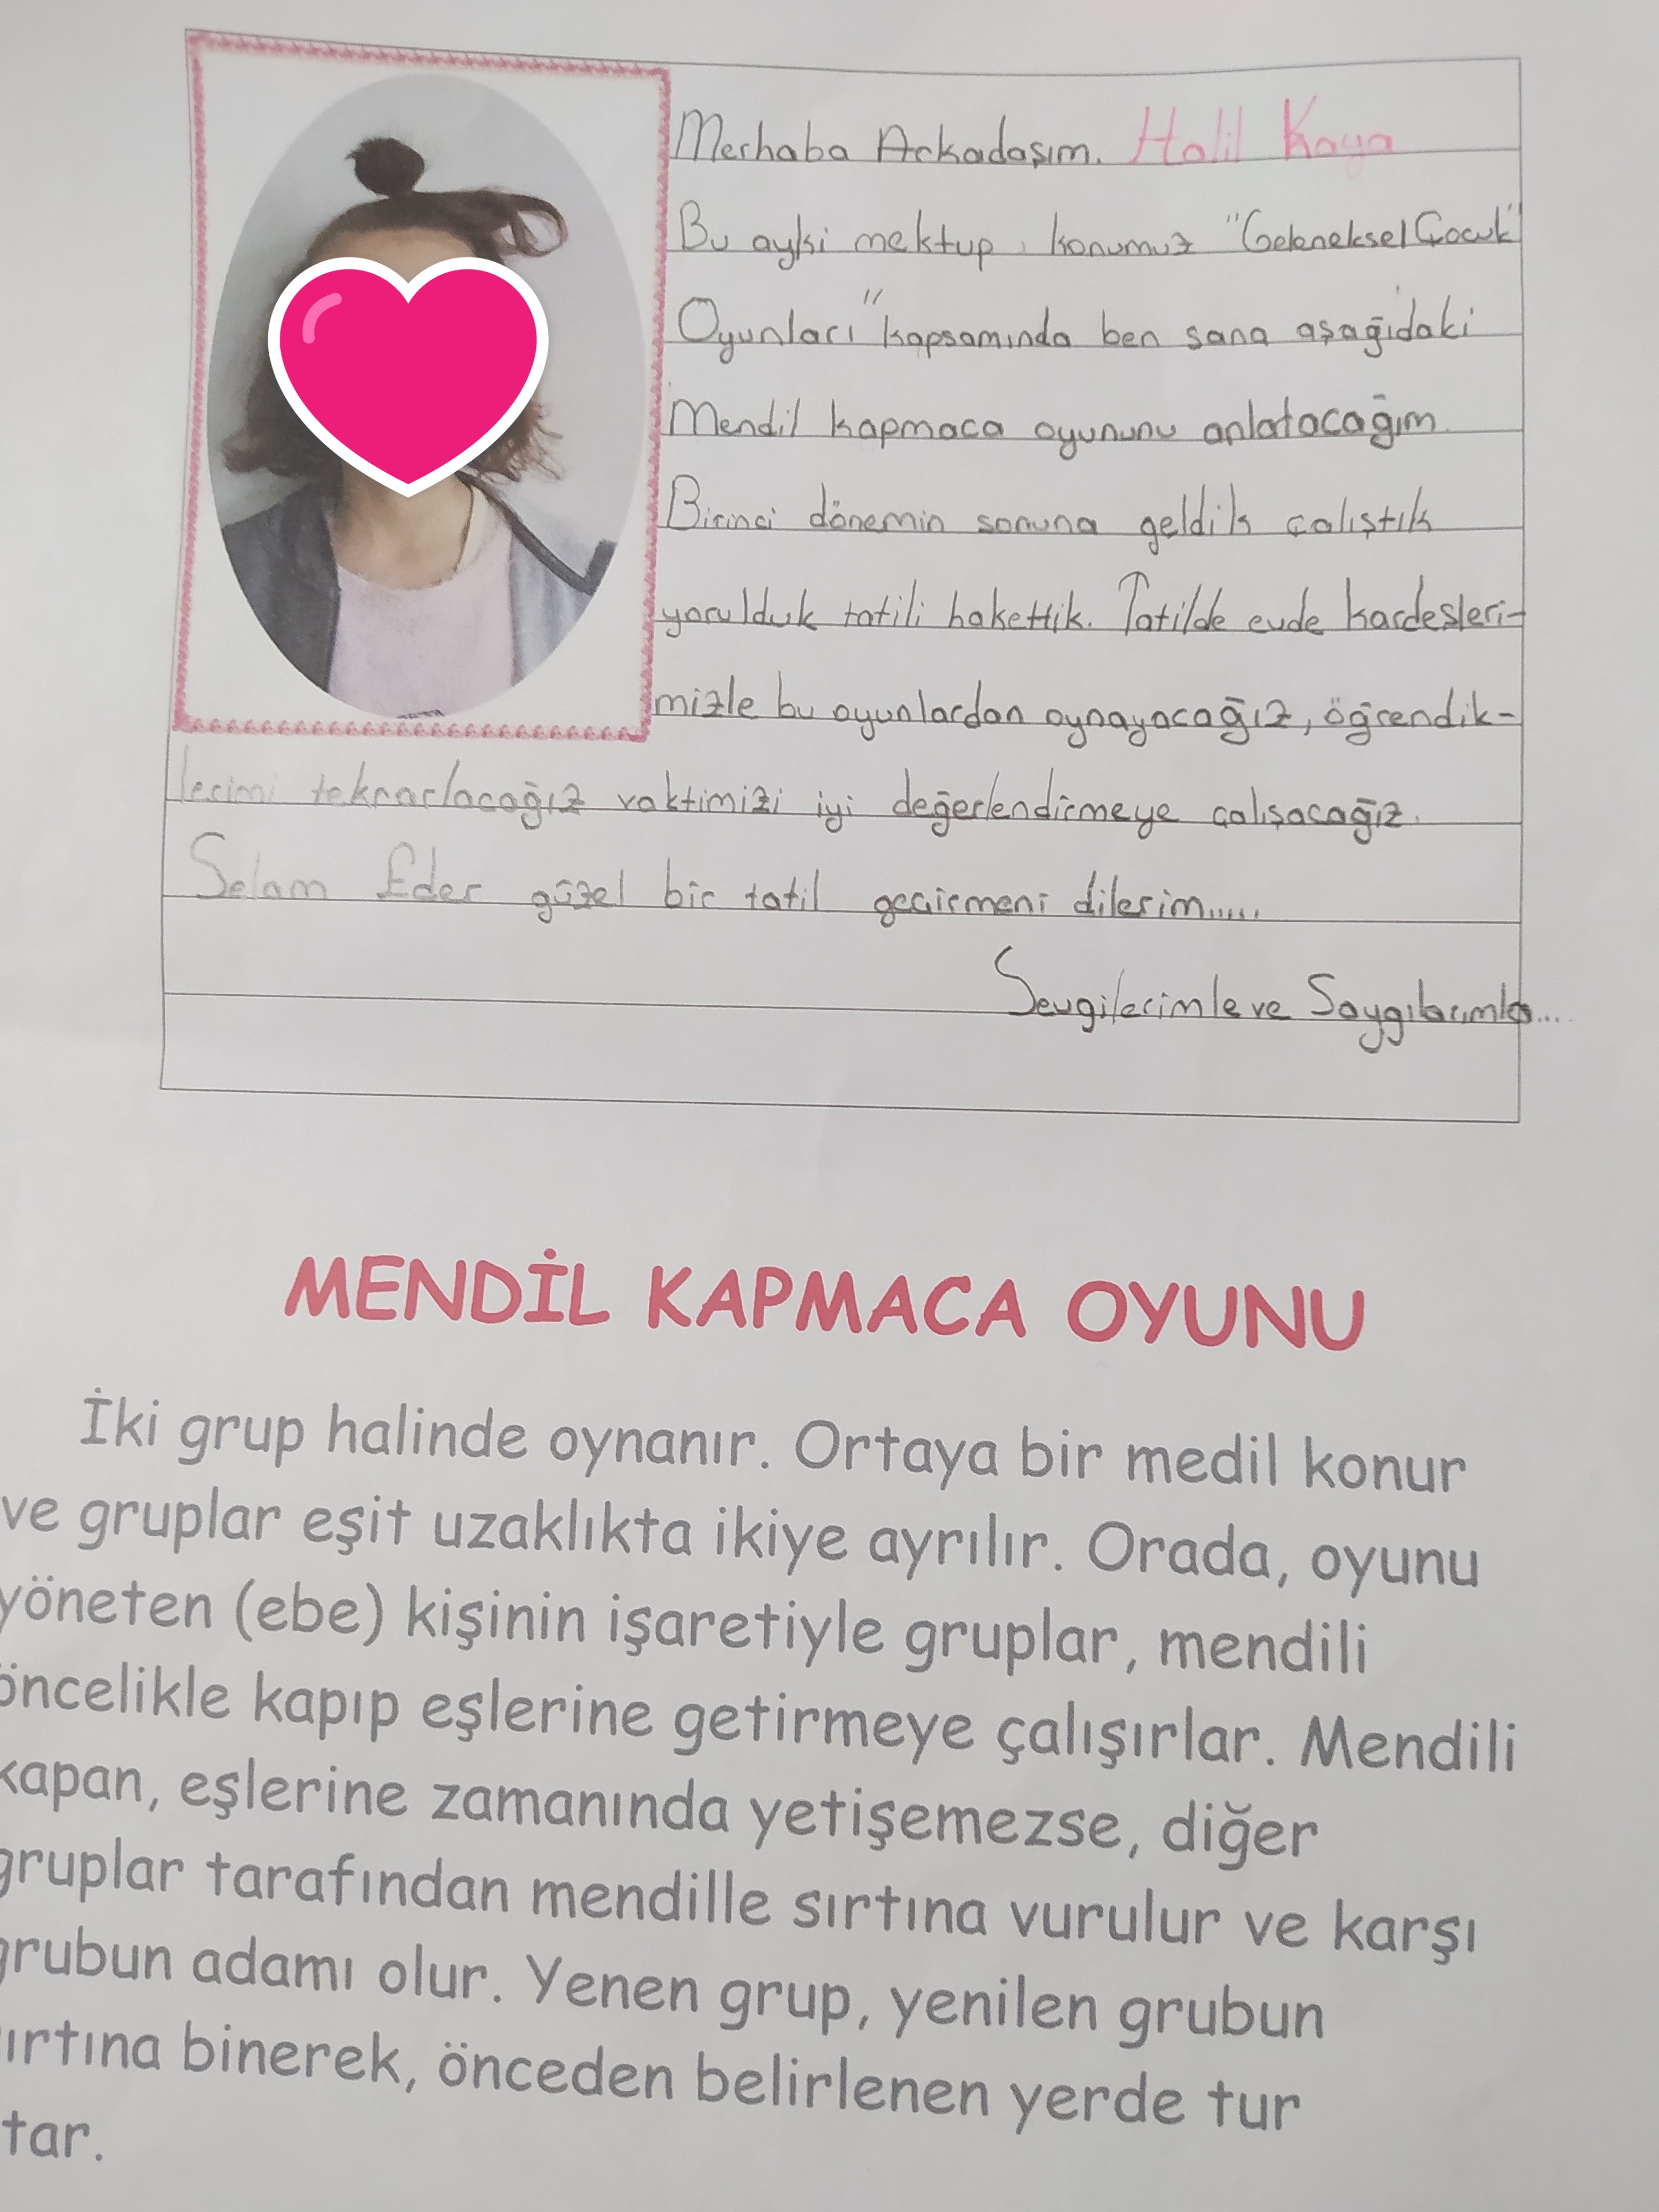 Merhaba Arkadaşım. Halil Kaya
Bu ayki mektup konumuz "Geleneksel Çocuk"
Oyunları" kapsamında ben sana aşağıdaki
Mendil kapmaca oyununu anlatacağım
Birinci dönemin sonuna geldik çalıştık
yorulduk tatili hakettik. Tatilde evde kardesleri-
mizle bu oyunlardan oynayacağız, öğrendik-
lerimi teknarlacağız vaktimizi iyi değerlendirmeye çalışacağız.
Selam Eder güzel bir tatil geçirmeni dilerim.....
Sevgilerimle ve Saygılarımla....
MENDİL KAPMACA OYUNU
İki grup halinde oynanır. Ortaya bir medil konur
ve gruplar eşit uzaklıkta ikiye ayrılır. Orada, oyunu
yöneten (ebe) kişinin işaretiyle gruplar, mendili
öncelikle kapıp eşlerine getirmeye çalışırlar. Mendili
kapan, eşlerine zamanında yetişemezse, diğer
gruplar tarafından mendille sırtına vurulur ve karşı
grubun adamı olur. Yenen grup, yenilen grubun
ırtına binerek, önceden belirlenen yerde tur
tar.